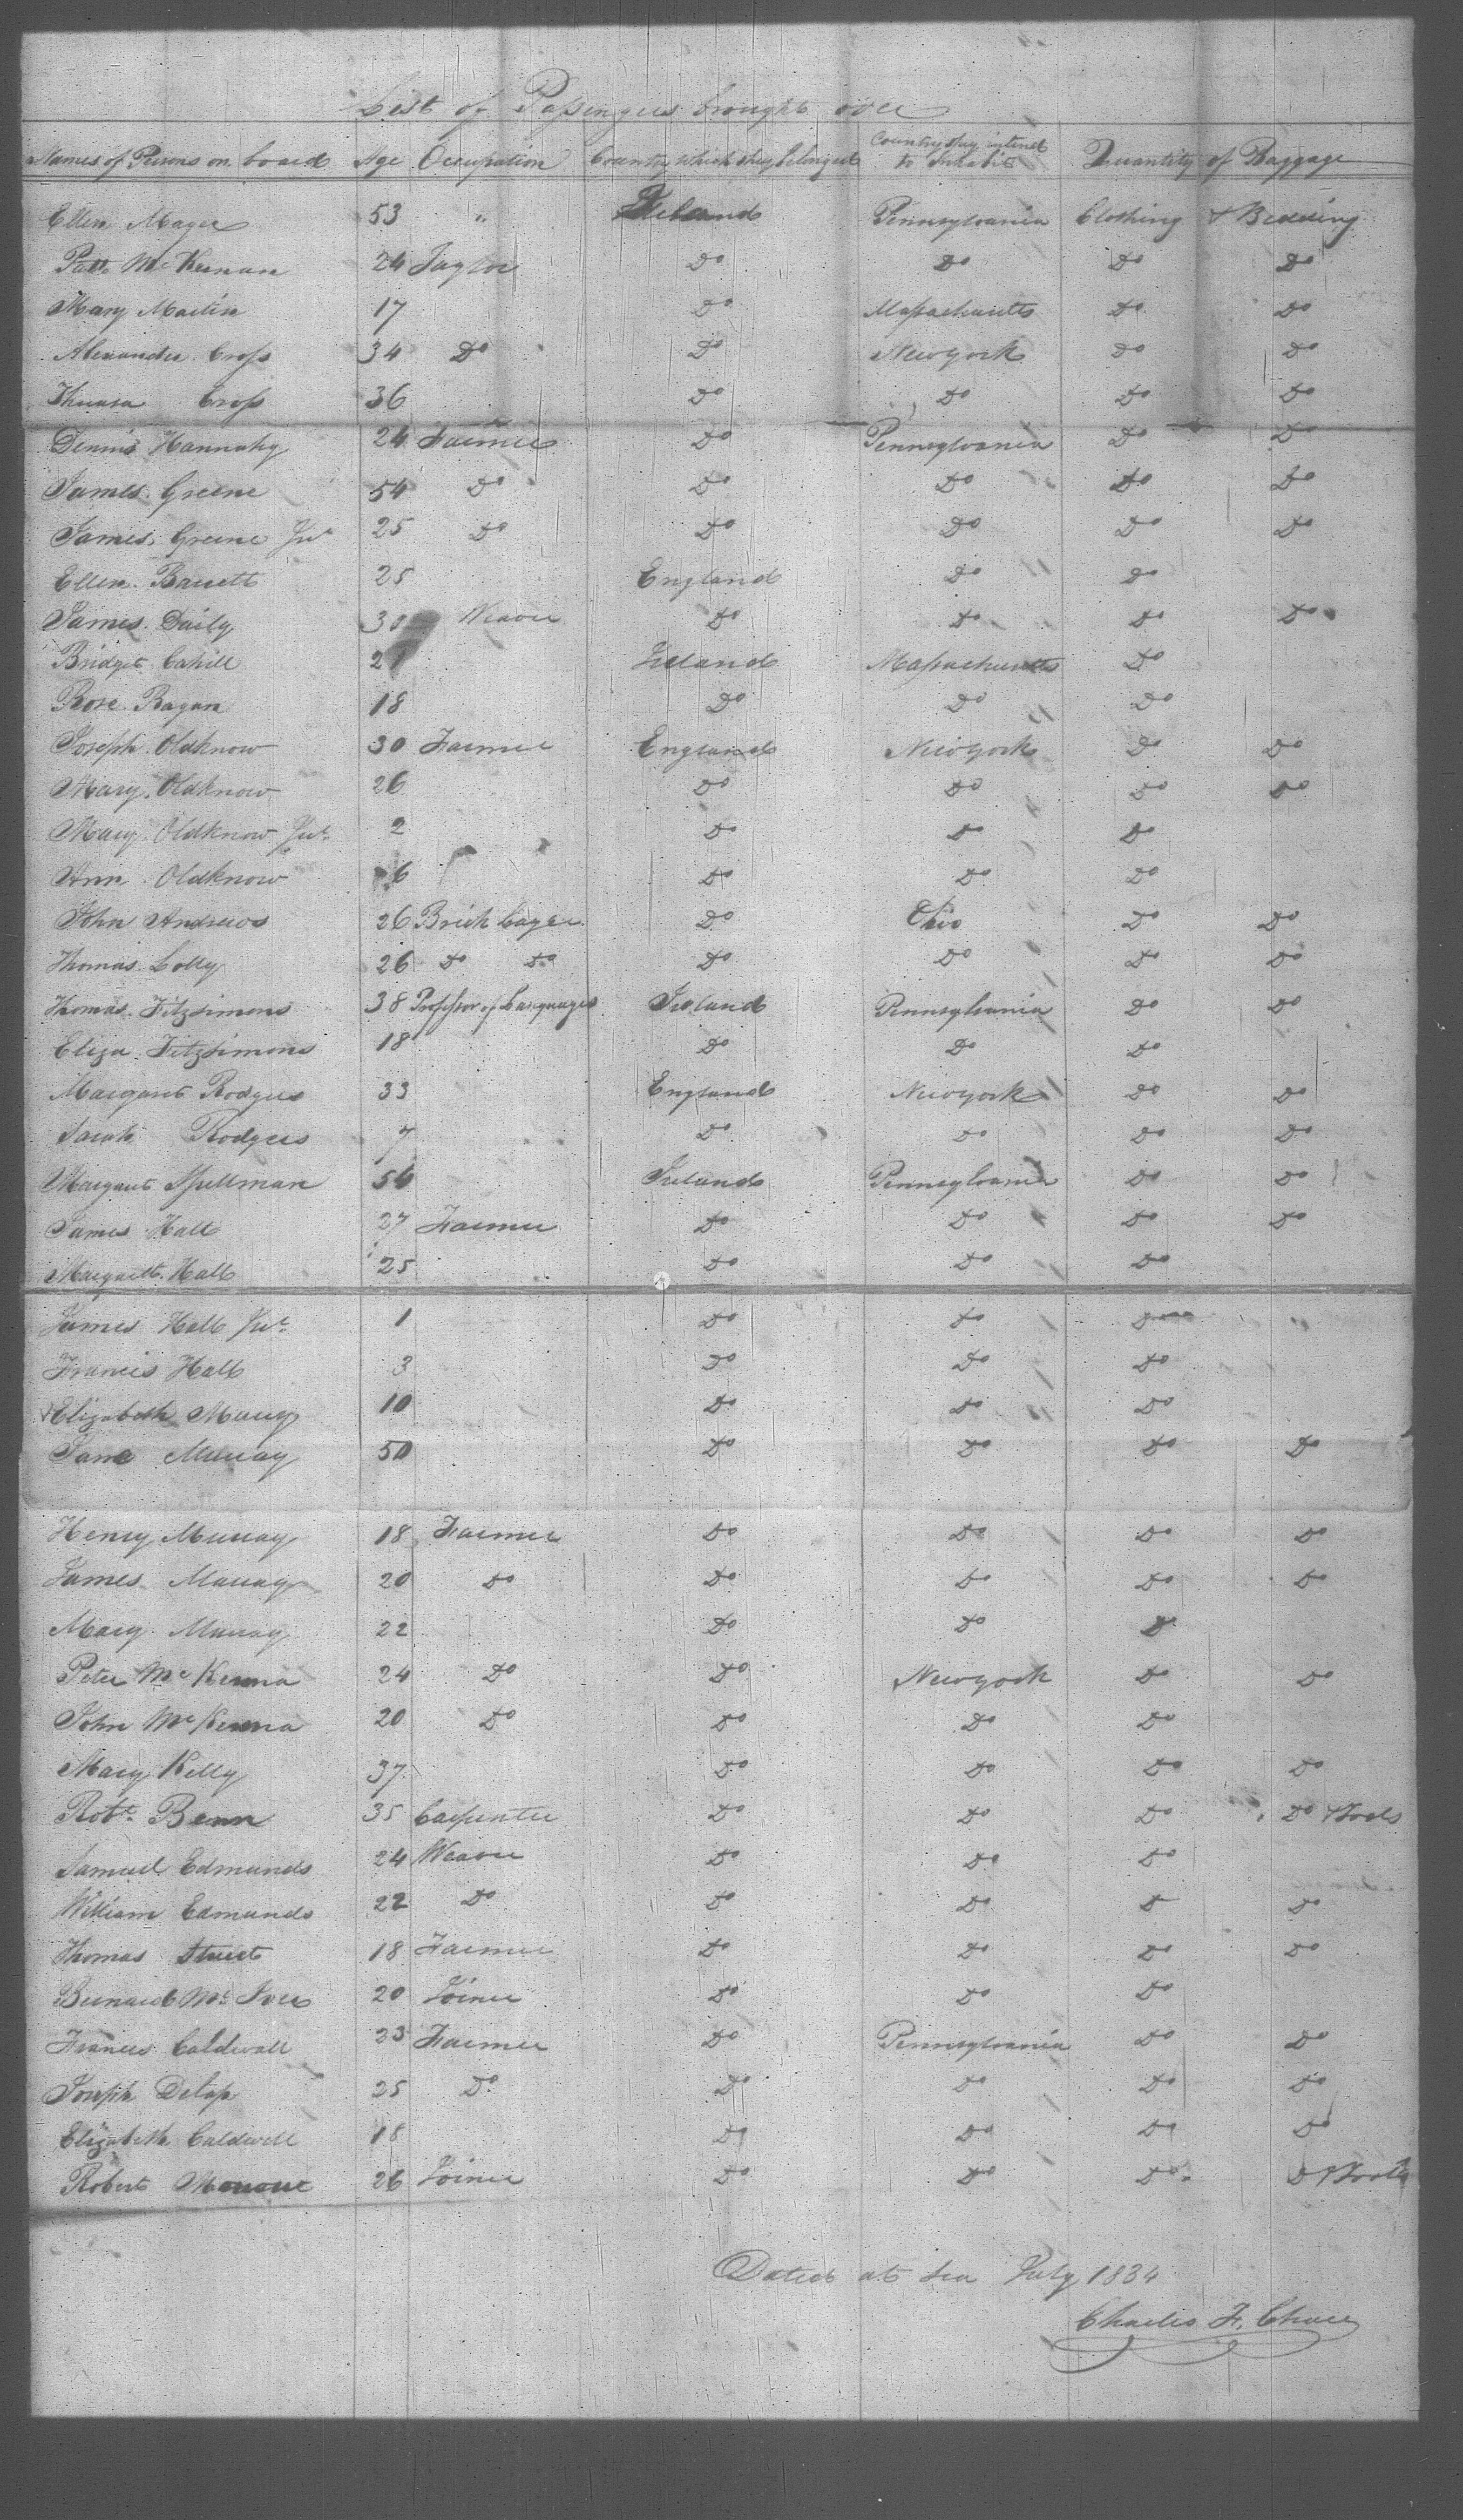 List of Passengers brought over
Names of Persons on board Age Occupation Country which they belonged Country they intend to Inhabit Quantity of Baggage
Ellen Mager 53 " Ireland Pennsylvania Clothing & Bedding
Patk McKernan 24 Taylor Do Do Do Do
Mary Martin 17 Do Massachusetts Do Do
Alexander Cross 34 Do Do New york Do Do
Cross 36 Do Do Do Do
Dennis Hannahy 24 Farmer Do Pennsylvania Do Do
James Greene 54 Do Do Do Do Do
James Greene Jur 25 Do Do Do Do Do
Ellen Barrett 25 England Do Do
James Daily 30 Weaver Do Do Do Do
Bridget Cahill 21 Ireland Massachusetts Do
Rose Ragan 18 Do Do Do
Joseph Oldknow 30 Farmer England New york Do Do
Mary Oldknow 26 Do Do Do Do
Mary Oldknow Jur 2 Do Do Do
Ann Oldknow 6 Do Do Do
John Andrews 26 Brick Layer Do Ohio Do Do
Thomas Lolly 26 Do Do Do Do Do Do
Thomas Fitzsimons 38 Professor of Languages Ireland Pennsylvania Do Do
Eliza Fitzsimons 18 Do Do Do
Margaret Rodgers 33 England New york Do Do
Sarah Rodgers 7 Do Do Do Do
Margaret Spellman 56 Ireland Pennsylvania Do Do
James Hall 27 Farmer Do Do Do Do
Margarett Hall 25 Do Do Do
James Hall Jur 1 Do Do Do
Francis Hall 3 Do Do Do
Elizabeth Murry 10 Do Do Do
Jane Murray 50 Do Do Do Do
Henry Murray 18 Farmer Do Do Do Do
James Murray 20 Do Do Do Do Do
Mary Murray 22 Do Do Do
Peter McKenna 24 Do Do New york Do Do
John McKenna 20 Do Do Do Do
Mary Kelly 37 Do Do Do Do
Robt Benn 35 Carpenter Do Do Do Do & Tools
Samuel Edmunds 24 Weaver Do Do Do
William Edmunds 22 Do Do Do Do Do
Thomas Street 18 Farmer Do Do Do Do
Bernard McIver 20 Joiner Do Do Do
Francis Caldwell 23 Farmer Do Pennsylvania Do Do
Joseph Delap 25 Do Do Do Do Do
Elizabeth Caldwell 18 Do Do Do Do
Robert 26 Joiner Do Do Do Do & Tools
Dated at Sea July 1834
Charles F. Chase